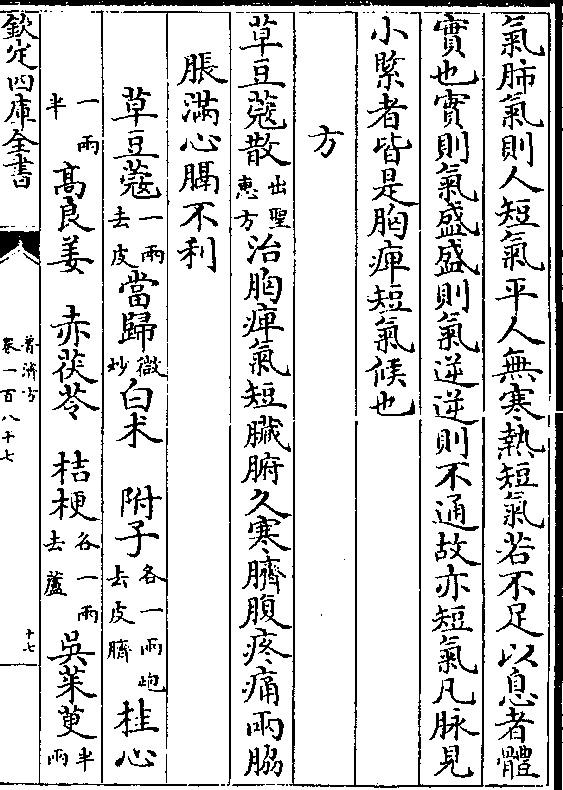 氣肺氣則人短氣平人無寒熱短氣若不足以息者體
實也實則氣盛盛則氣逆逆則不通故亦短氣凡脉見
小緊者皆是胸痺短氣候也
方
草豆蔻散出聖惠方治胸痺氣短臟腑久寒臍腹疼痛兩脇
脹滿心膈不利
草豆蔻一兩去皮當歸微炒白术 附子各一兩炮去皮臍 桂心
一兩半 髙良姜 赤茯苓 桔梗各一兩去蘆 吳茱萸半兩
欽定四庫全書
普濟方
卷一百八十七
十七